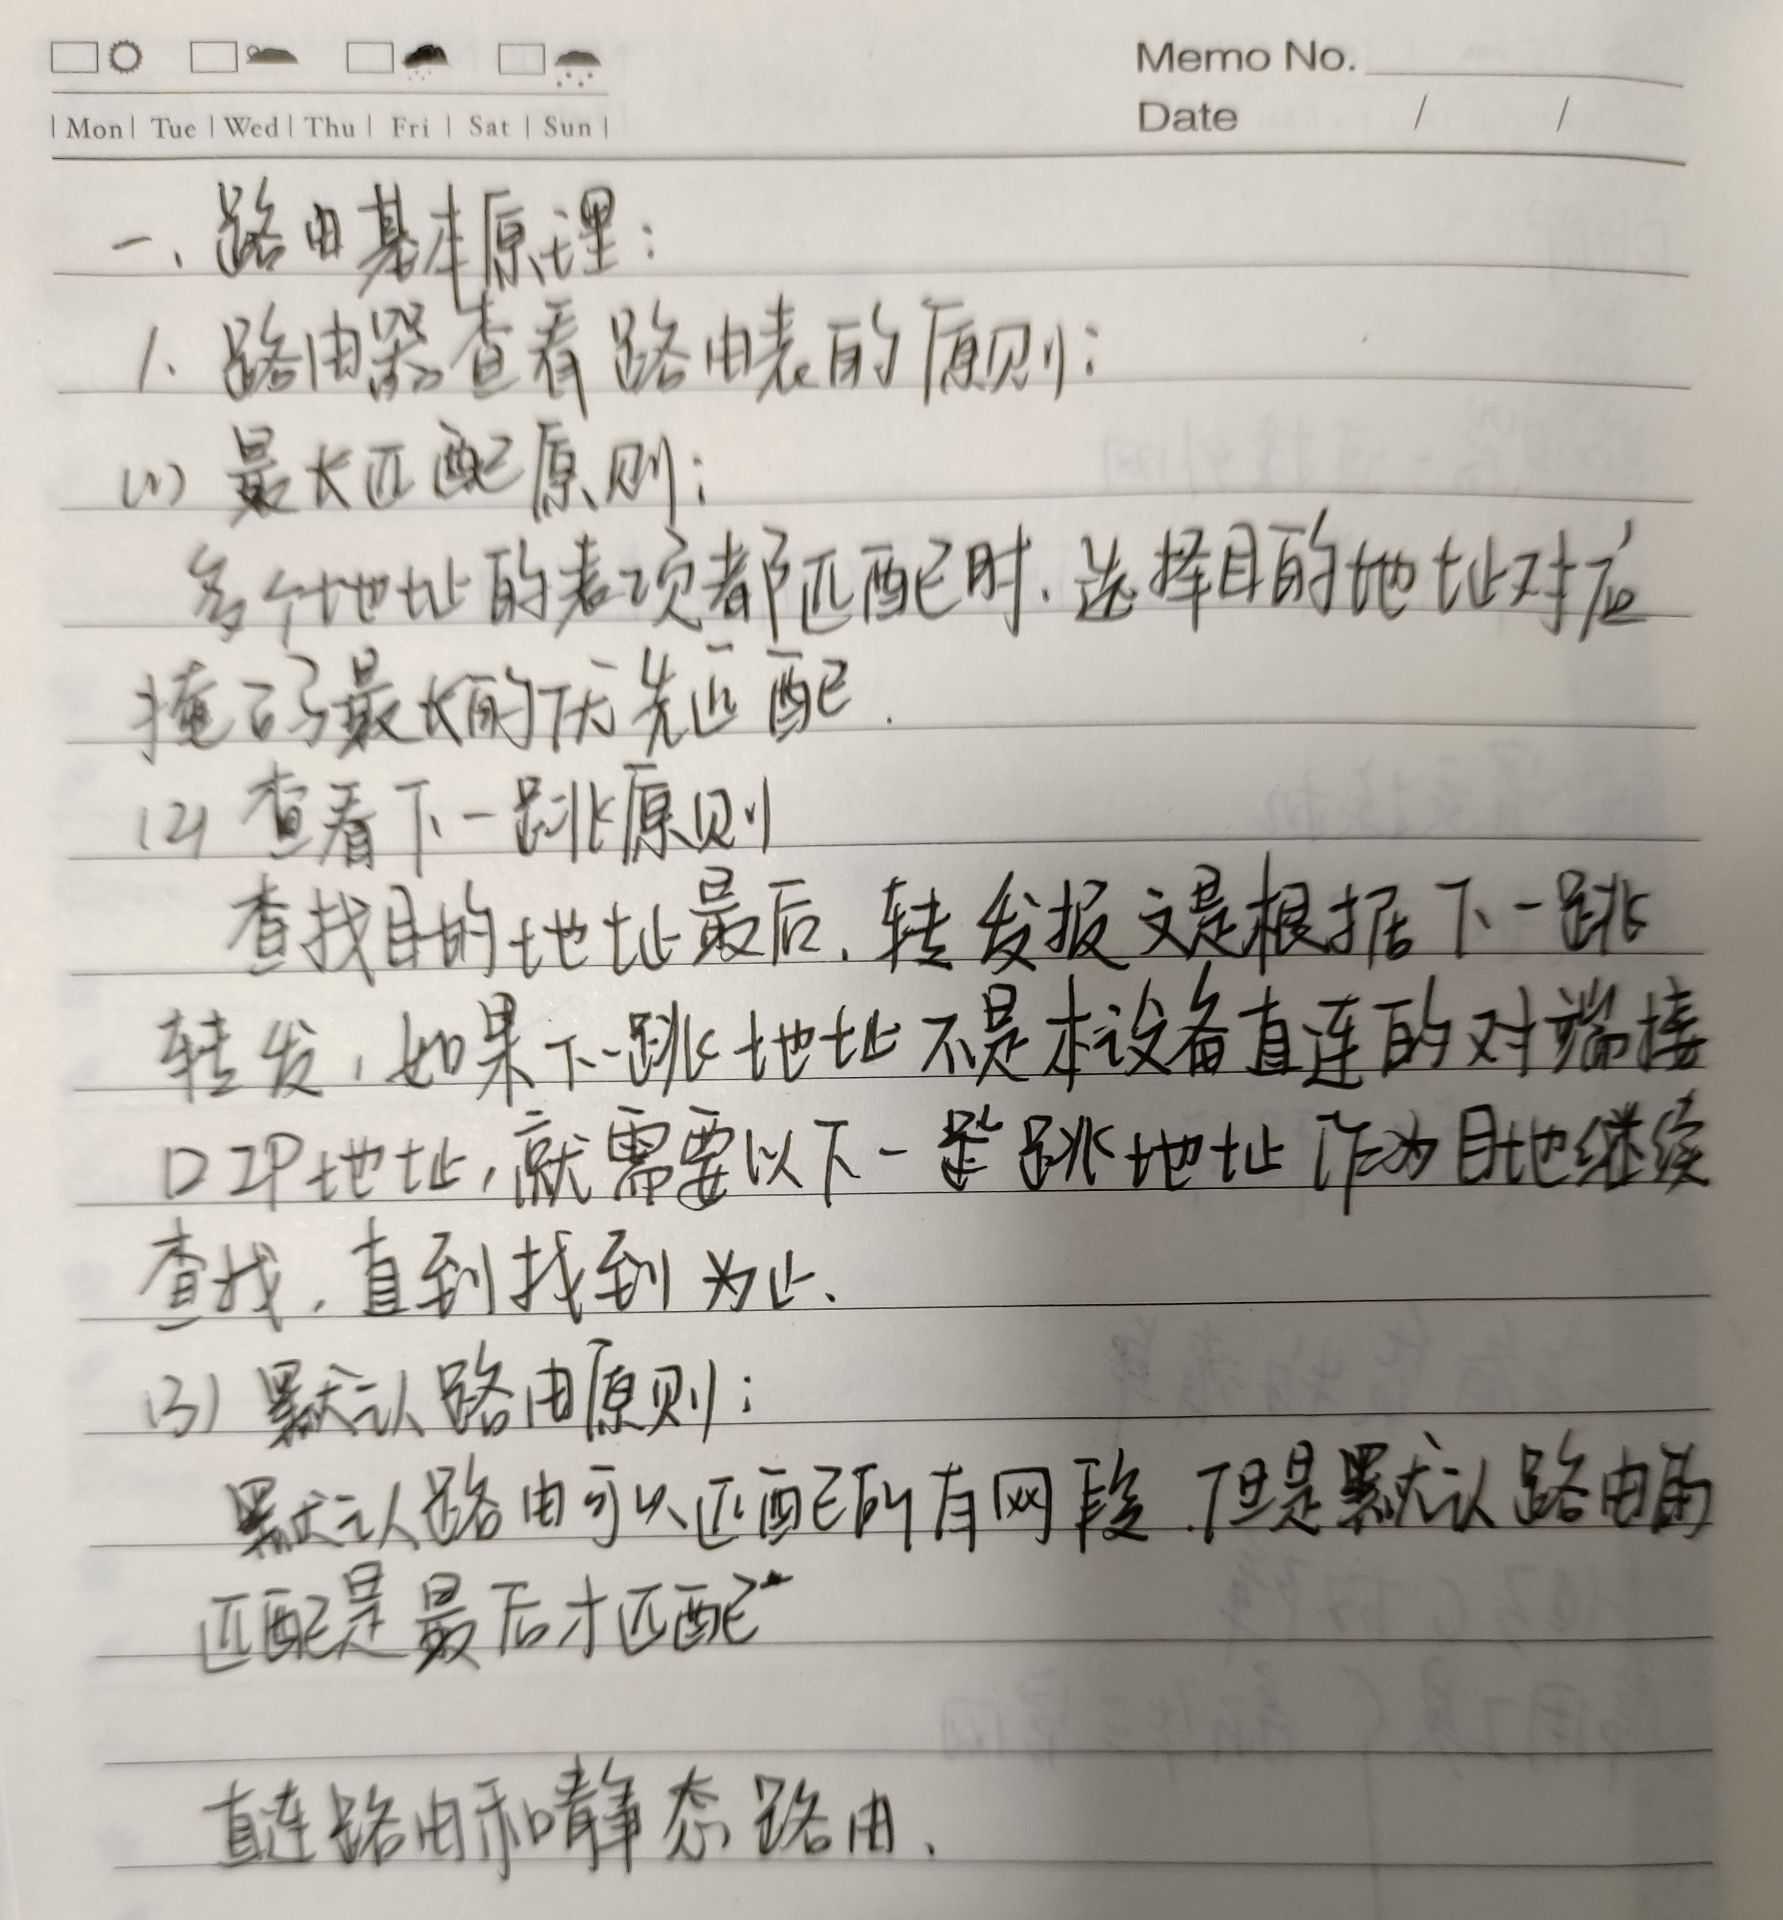 Memo No.
Mon Tue Wed Thu Fri Sat Sun
Date / /
一、路由基本原理：
1、路由器查看路由表的原则：
(1) 最长匹配原则：
多个地址的表项都匹配时、选择目的地址对应
掩码最长的优先匹配.
(2) 查看下一跳原则
查找目的地址最后、转发报文是根据下一跳
转发，如果下一跳地址不是本设备直连的对端接
口IP地址，就需要以下一跳地址作为目地继续
查找，直到找到为止、
(3) 默认路由原则：
默认路由可以匹配所有网段、但是默认路由的
匹配是最后才匹配
直连路由和静态路由、